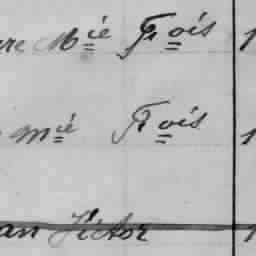 re Mié Fr ois 1
Mié Fr ois 1
an Victor 1